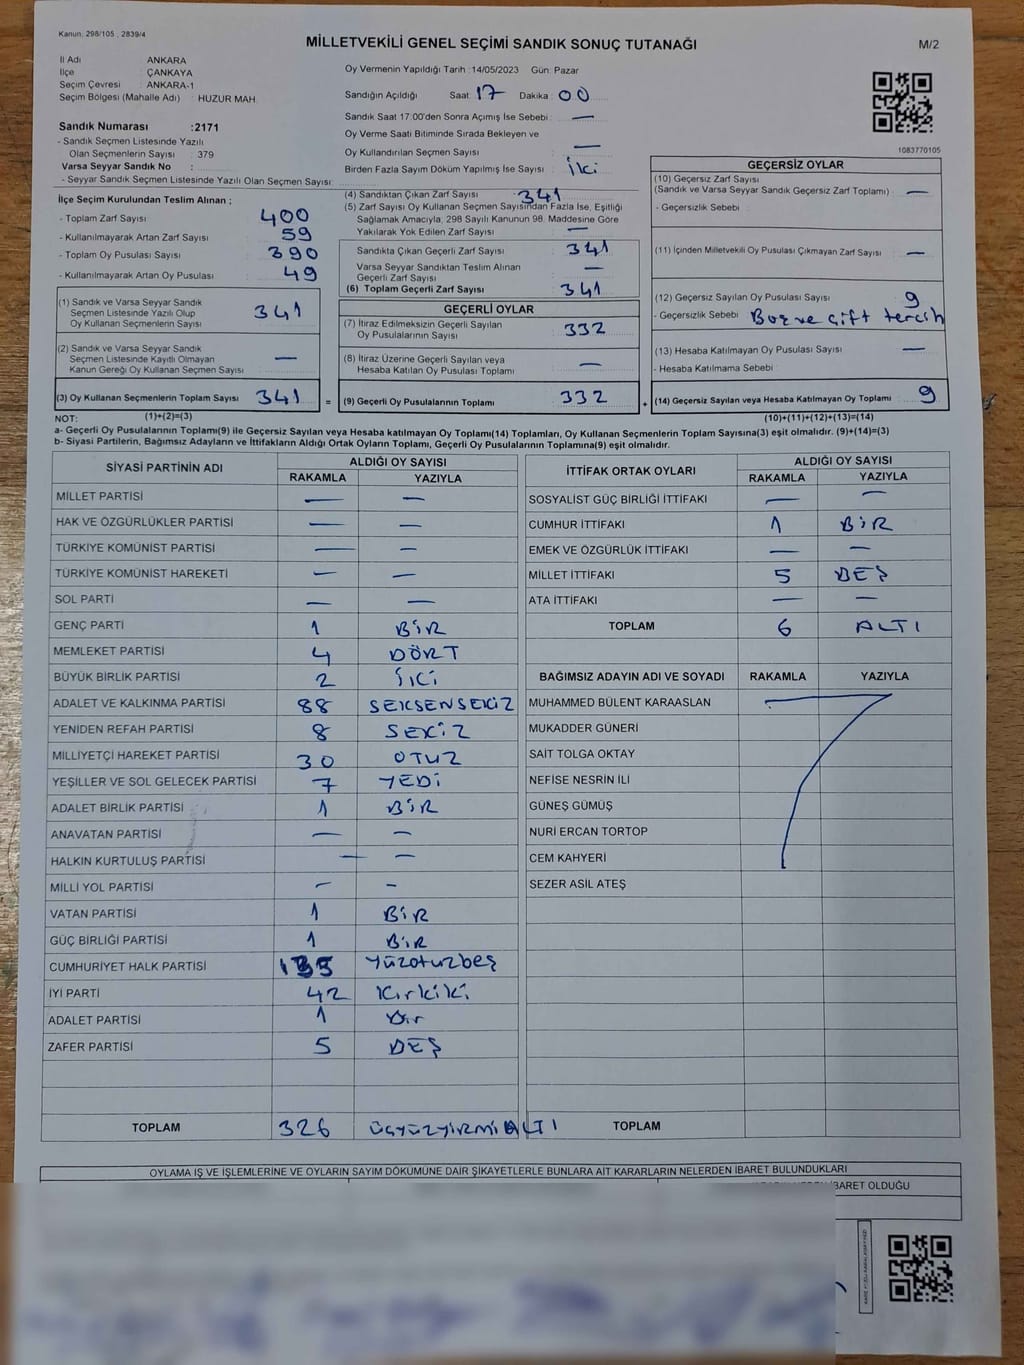 Kanun: 298/105 , 2839/4
MİLLETVEKİLİ GENEL SEÇİMİ SANDIK SONUÇ TUTANAĞI
M/2
İl Adı ANKARA
İlçe ÇANKAYA
Seçim Çevresi : ANKARA-1
Seçim Bölgesi (Mahalle Adı) : HUZUR MAH.
Sandık Numarası :2171
- Sandık Seçmen Listesinde Yazılı
Olan Seçmenlerin Sayısı : 379
Varsa Seyyar Sandık No :
- Seyyar Sandık Seçmen Listesinde Yazılı Olan Seçmen Sayısı:
İlçe Seçim Kurulundan Teslim Alınan ;
- Toplam Zarf Sayısı 400
- Kullanılmayarak Artan Zarf Sayısı 59
- Toplam Oy Pusulası Sayısı 390
- Kullanılmayarak Artan Oy Pusulası 49
(1) Sandık ve Varsa Seyyar Sandık
Seçmen Listesinde Yazılı Olup
Oy Kullanan Seçmenlerin Sayısı 341
(2) Sandık ve Varsa Seyyar Sandık
Seçmen Listesinde Kayıtlı Olmayan
Kanun Gereği Oy Kullanan Seçmen Sayısı : —
(3) Oy Kullanan Seçmenlerin Toplam Sayısı 341 =
(1)+(2)=(3)
Oy Vermenin Yapıldığı Tarih :14/05/2023 Gün: Pazar
Sandığın Açıldığı Saat: 17 Dakika: 00
Sandık Saat 17.00'den Sonra Açımış İse Sebebi : —
Oy Verme Saati Bitiminde Sırada Bekleyen ve
Oy Kullandırılan Seçmen Sayısı : —
Birden Fazla Sayım Döküm Yapılmış İse Sayısı : İki
(4) Sandıktan Çıkan Zarf Sayısı : 341
(5) Zarf Sayısı Oy Kullanan Seçmen Sayısından Fazla İse, Eşitliği
Sağlamak Amacıyla; 298 Sayılı Kanunun 98. Maddesine Göre
Yakılarak Yok Edilen Zarf Sayısı : —
Sandıkta Çıkan Geçerli Zarf Sayısı : 341
Varsa Seyyar Sandıktan Teslim Alınan
Geçerli Zarf Sayısı : —
(6) Toplam Geçerli Zarf Sayısı : 341
GEÇERLİ OYLAR
(7) İtiraz Edilmeksizin Geçerli Sayılan
Oy Pusulalarının Sayısı : 332
(8) İtiraz Üzerine Geçerli Sayılan veya
Hesaba Katılan Oy Pusulası Toplamı : —
(9) Geçerli Oy Pusulalarının Toplamı : 332 +
1083770105
GEÇERSİZ OYLAR
(10) Geçersiz Zarf Sayısı :
(Sandık ve Varsa Seyyar Sandık Geçersiz Zarf Toplamı) : —
- Geçersizlik Sebebi :
(11) İçinden Milletvekili Oy Pusulası Çıkmayan Zarf Sayısı : —
(12) Geçersiz Sayılan Oy Pusulası Sayısı : 9
- Geçersizlik Sebebi : Boş ve çift tercih
(13) Hesaba Katılmayan Oy Pusulası Sayısı : —
- Hesaba Katılmama Sebebi :
(14) Geçersiz Sayılan veya Hesaba Katılmayan Oy Toplamı : 9
(10)+(11)+(12)+(13)=(14)
NOT:
a- Geçerli Oy Pusulalarının Toplamı(9) ile Geçersiz Sayılan veya Hesaba katılmayan Oy Toplamı(14) Toplamları, Oy Kullanan Seçmenlerin Toplam Sayısına(3) eşit olmalıdır. (9)+(14)=(3)
b- Siyasi Partilerin, Bağımsız Adayların ve İttifakların Aldığı Ortak Oyların Toplamı, Geçerli Oy Pusulalarının Toplamına(9) eşit olmalıdır.
SİYASİ PARTİNİN ADI ALDIĞI OY SAYISI
RAKAMLA YAZIYLA
MİLLET PARTİSİ — —
HAK VE ÖZGÜRLÜKLER PARTİSİ — —
TÜRKİYE KOMÜNİST PARTİSİ — —
TÜRKİYE KOMÜNİST HAREKETİ — —
SOL PARTİ — —
GENÇ PARTİ 1 BİR
MEMLEKET PARTİSİ 4 DÖRT
BÜYÜK BİRLİK PARTİSİ 2 İKİ
ADALET VE KALKINMA PARTİSİ 88 SEKSENSEKİZ
YENİDEN REFAH PARTİSİ 8 SEKİZ
MİLLİYETÇİ HAREKET PARTİSİ 30 OTUZ
YEŞİLLER VE SOL GELECEK PARTİSİ 7 YEDİ
ADALET BİRLİK PARTİSİ 1 BİR
ANAVATAN PARTİSİ — —
HALKIN KURTULUŞ PARTİSİ — —
MİLLİ YOL PARTİSİ — —
VATAN PARTİSİ 1 BİR
GÜÇ BİRLİĞİ PARTİSİ 1 BİR
CUMHURİYET HALK PARTİSİ 135 Yüzotuzbeş
İYİ PARTİ 42 Kırkiki
ADALET PARTİSİ 1 Bir
ZAFER PARTİSİ 5 BEŞ
TOPLAM 326 ÜÇYÜZYİRMİALTI
İTTİFAK ORTAK OYLARI ALDIĞI OY SAYISI
RAKAMLA YAZIYLA
SOSYALİST GÜÇ BİRLİĞİ İTTİFAKI — —
CUMHUR İTTİFAKI 1 BİR
EMEK VE ÖZGÜRLÜK İTTİFAKI — —
MİLLET İTTİFAKI 5 BEŞ
ATA İTTİFAKI — —
TOPLAM 6 ALTI
BAĞIMSIZ ADAYIN ADI VE SOYADI RAKAMLA YAZIYLA
MUHAMMED BÜLENT KARAASLAN
MUKADDER GÜNERİ
SAİT TOLGA OKTAY
NEFİSE NESRİN İLİ
GÜNEŞ GÜMÜŞ
NURİ ERCAN TORTOP
CEM KAHYERİ
SEZER ASİL ATEŞ
TOPLAM
OYLAMA İŞ VE İŞLEMLERİNE VE OYLARIN SAYIM DÖKÜMÜNE DAİR ŞİKAYETLERLE BUNLARA AİT KARARLARIN NELERDEN İBARET BULUNDUKLARI
İBARET OLDUĞU